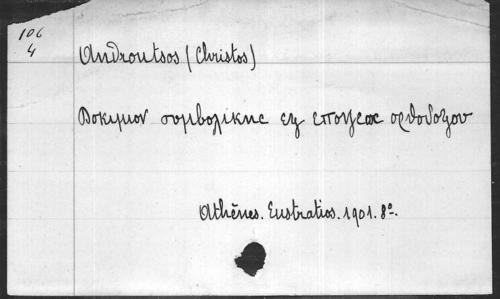 106
4
Androutsos (Christos)
Δοκιμιον συμβολικης εξ εποψεως ορθοδοξου
Athènes. Eustratios. 1901. 8º.